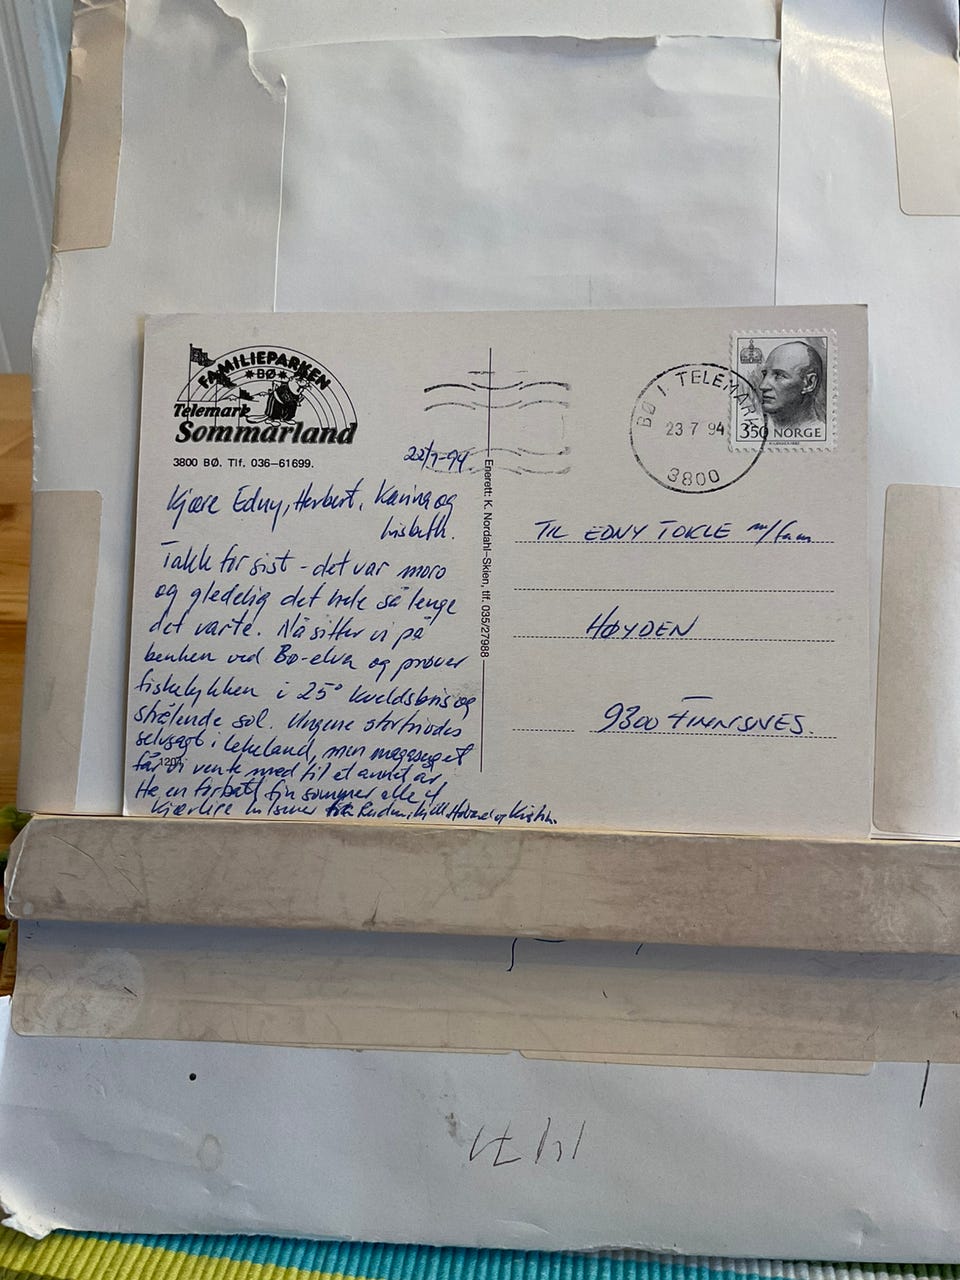 FAMILIEPARKEN
*BØ*
Telemark
Sommarland
3800 BØ. Tlf. 036-61699.
22/7-94
Kjære Edny, Herbert, Karina og
Lisbeth.
Takk for sist - det var moro
og gledelig det hele så lenge
det varte. Nå sitter vi på
benken ved Bø-elva og prøver
fiskelykken i 25° kveldsbris og
strålende sol. Ungene stortrivdes
selvsagt i lekeland, men magasuget
får vi vente med til et annet år.
Ha en fortsatt fin sommer alle 4
Kjærlige hilsner fra
1204
Enerett: K. Nordahl-Skien, tlf. 035/27988
BØ I TELEMARK
23 7 94
3800
350 NORGE
TIL EDNY TOKLE m/fam
HØYDEN
9300 FINNSNES.